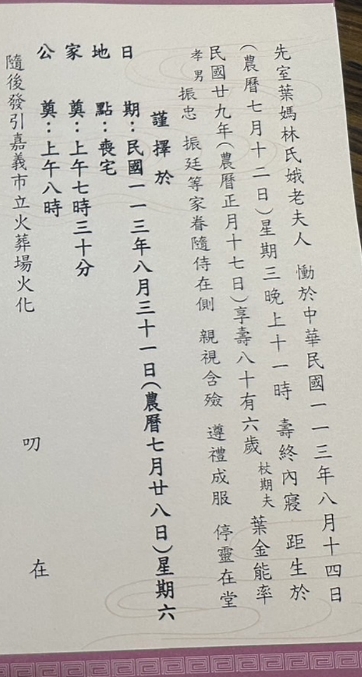 先室葉媽林氏娥老夫人　慟於中華民國一一三年八月十四日
(農曆七月十二日)星期三晚上十一時　壽終內寢　距生於
民國廿九年(農曆正月十七日)享壽八十有六歲　杖期夫　葉金能率
孝男　振忠　振廷等家眷隨侍在側　親視含殮　遵禮成服　停靈在堂
謹擇於
日期：民國一一三年八月三十一日(農曆七月廿八日)星期六
地點：喪宅
家奠：上午七時三十分
公奠：上午八時
隨後發引嘉義市立火葬場火化
叨　在